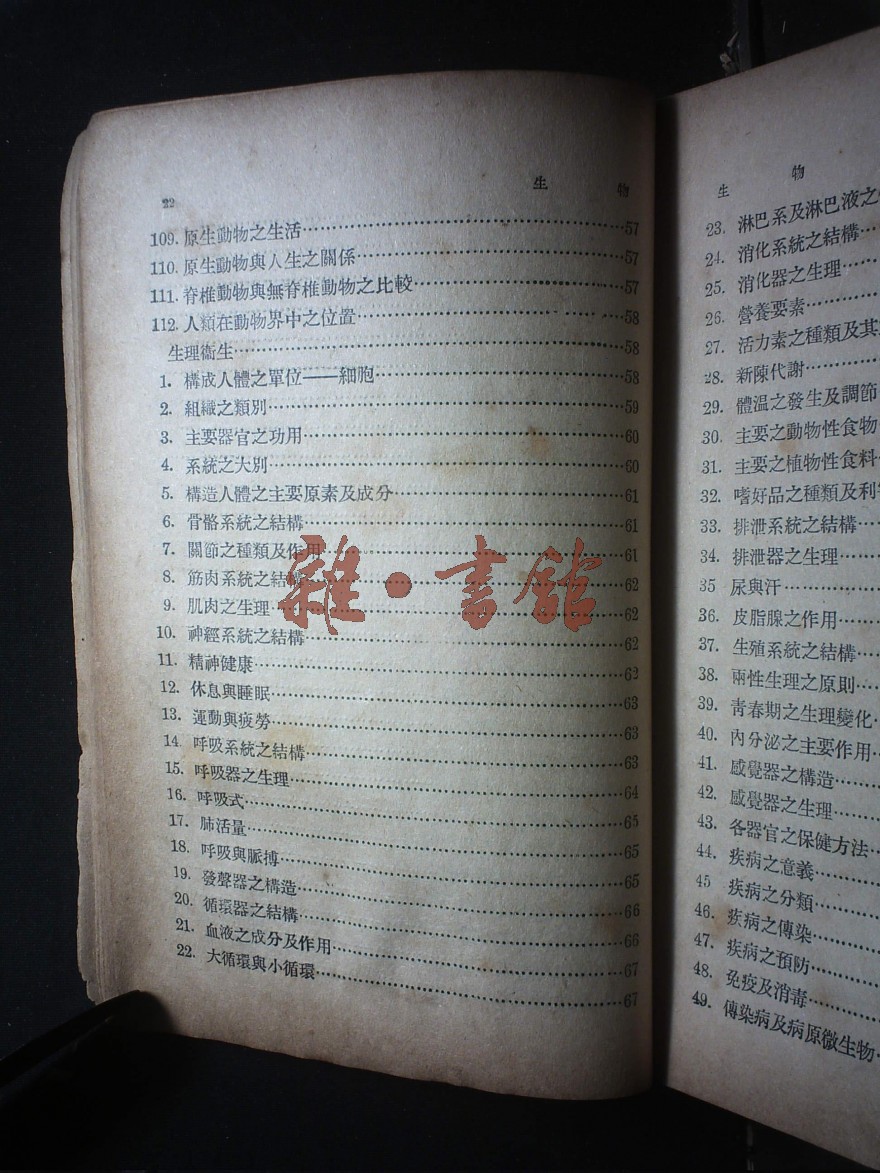 22 生物
109. 原生動物之生活……57
110. 原生動物與人生之關係……57
111. 脊椎動物與無脊椎動物之比較……57
112. 人類在動物界中之位置……58
生理衞生……58
1. 構成人體之單位——細胞……58
2. 組織之類別……59
3. 主要器官之功用……60
4. 系統之大別……60
5. 構造人體之主要原素及成分……61
6. 骨骼系統之結構……61
7. 關節之種類及作用……61
8. 筋肉系統之結構……62
9. 肌肉之生理……62
10. 神經系統之結構……62
11. 精神健康……62
12. 休息與睡眠……63
13. 運動與疲勞……63
14. 呼吸系統之結構……63
15. 呼吸器之生理……64
16. 呼吸式……65
17. 肺活量……65
18. 呼吸與脈搏……65
19. 發聲器之構造……66
20. 循環器之結構……66
21. 血液之成分及作用……67
22. 大循環與小循環……67
雜·書館
生物
23. 淋巴系及淋巴液之
24. 消化系統之結構……
25. 消化器之生理……
26. 營養要素……
27. 活力素之種類及其
28. 新陳代謝……
29. 體温之發生及調節
30. 主要之動物性食物
31. 主要之植物性食料
32. 嗜好品之種類及利
33. 排泄系統之結構……
34. 排泄器之生理……
35 尿與汗……
36. 皮脂腺之作用……
37. 生殖系統之結構……
38. 兩性生理之原則……
39. 靑春期之生理變化
40. 內分泌之主要作用
41. 感覺器之構造……
42. 感覺器之生理……
43. 各器官之保健方法
44. 疾病之意義……
45 疾病之分類……
46. 疾病之傳染……
47. 疾病之預防……
48. 免疫及消毒……
49. 傳染病及病原微生物